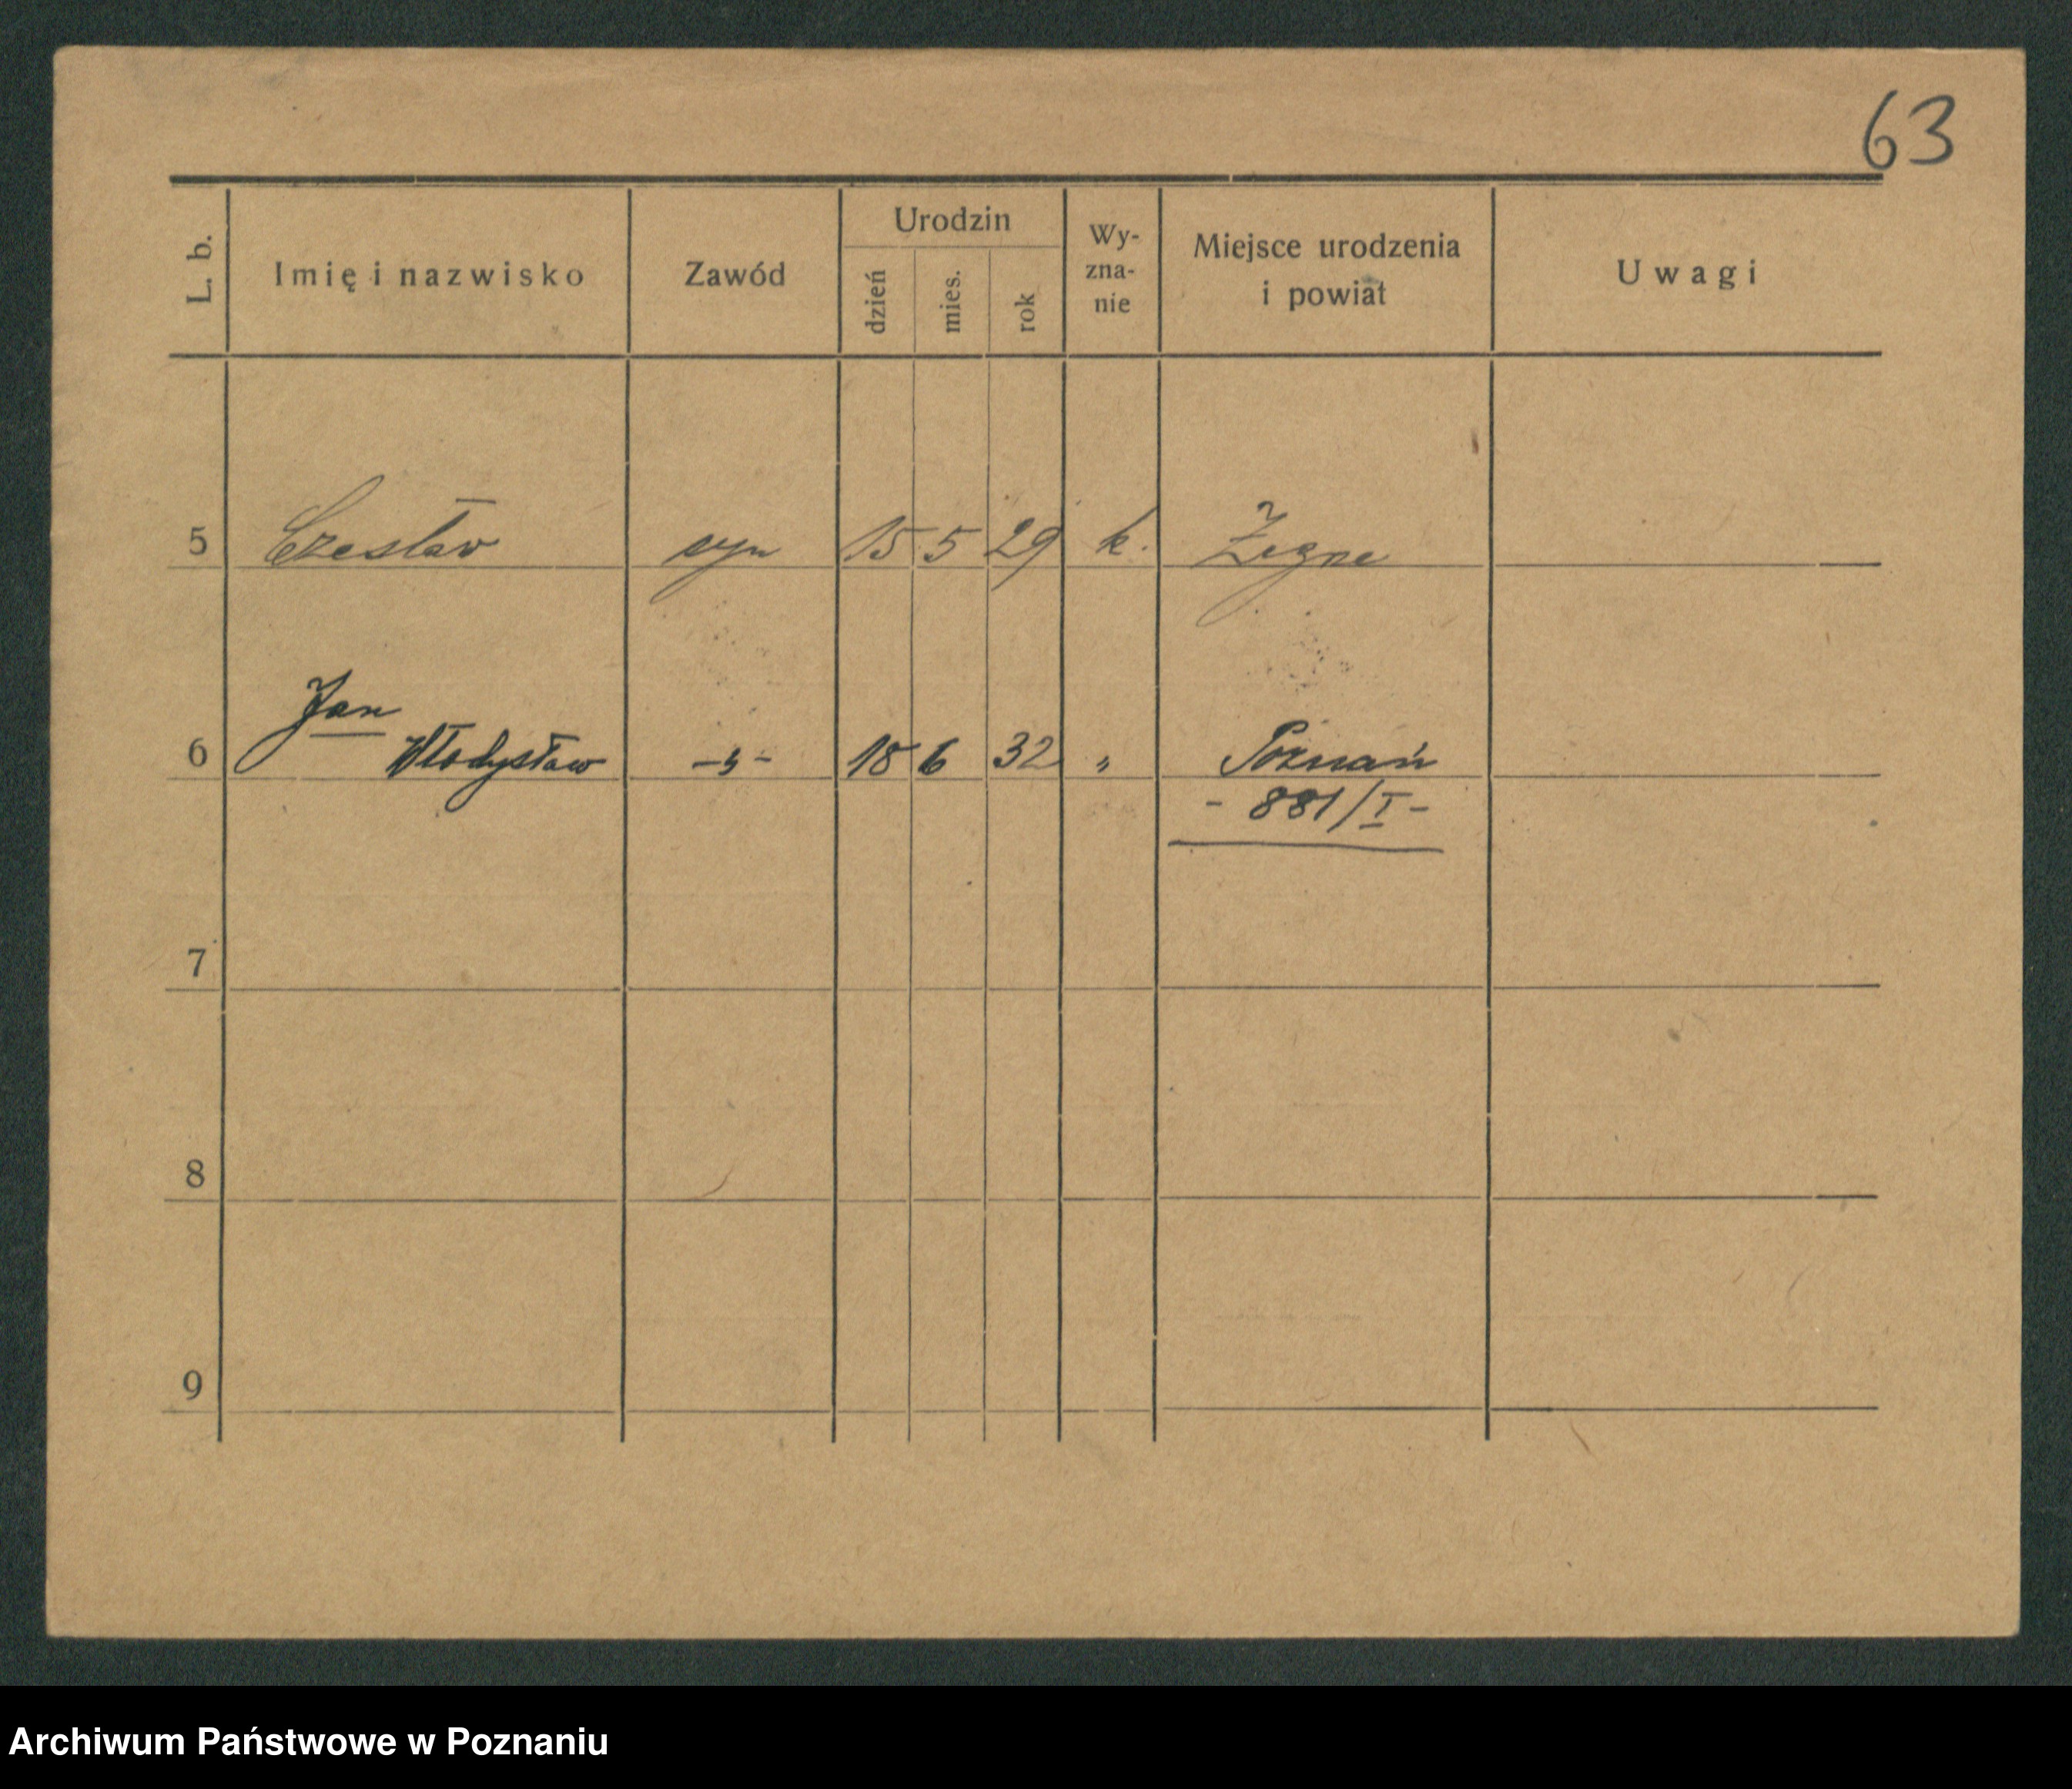 63
L. b. Imię i nazwisko Zawód Urodzin dzień mies. rok Wy-zna-nie Miejsce urodzenia i powiat Uwagi
5 Czesław syn 15 5 29 k.
Jan
6 Włodysław -"- 18 6 32 " Poznań
- 881/I -
7
8
9
Archiwum Państwowe w Poznaniu